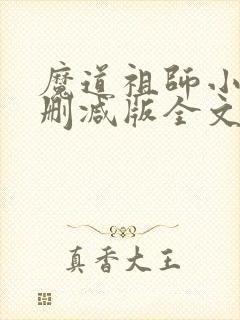 魔道祖師小
刪減版全文
真香大王